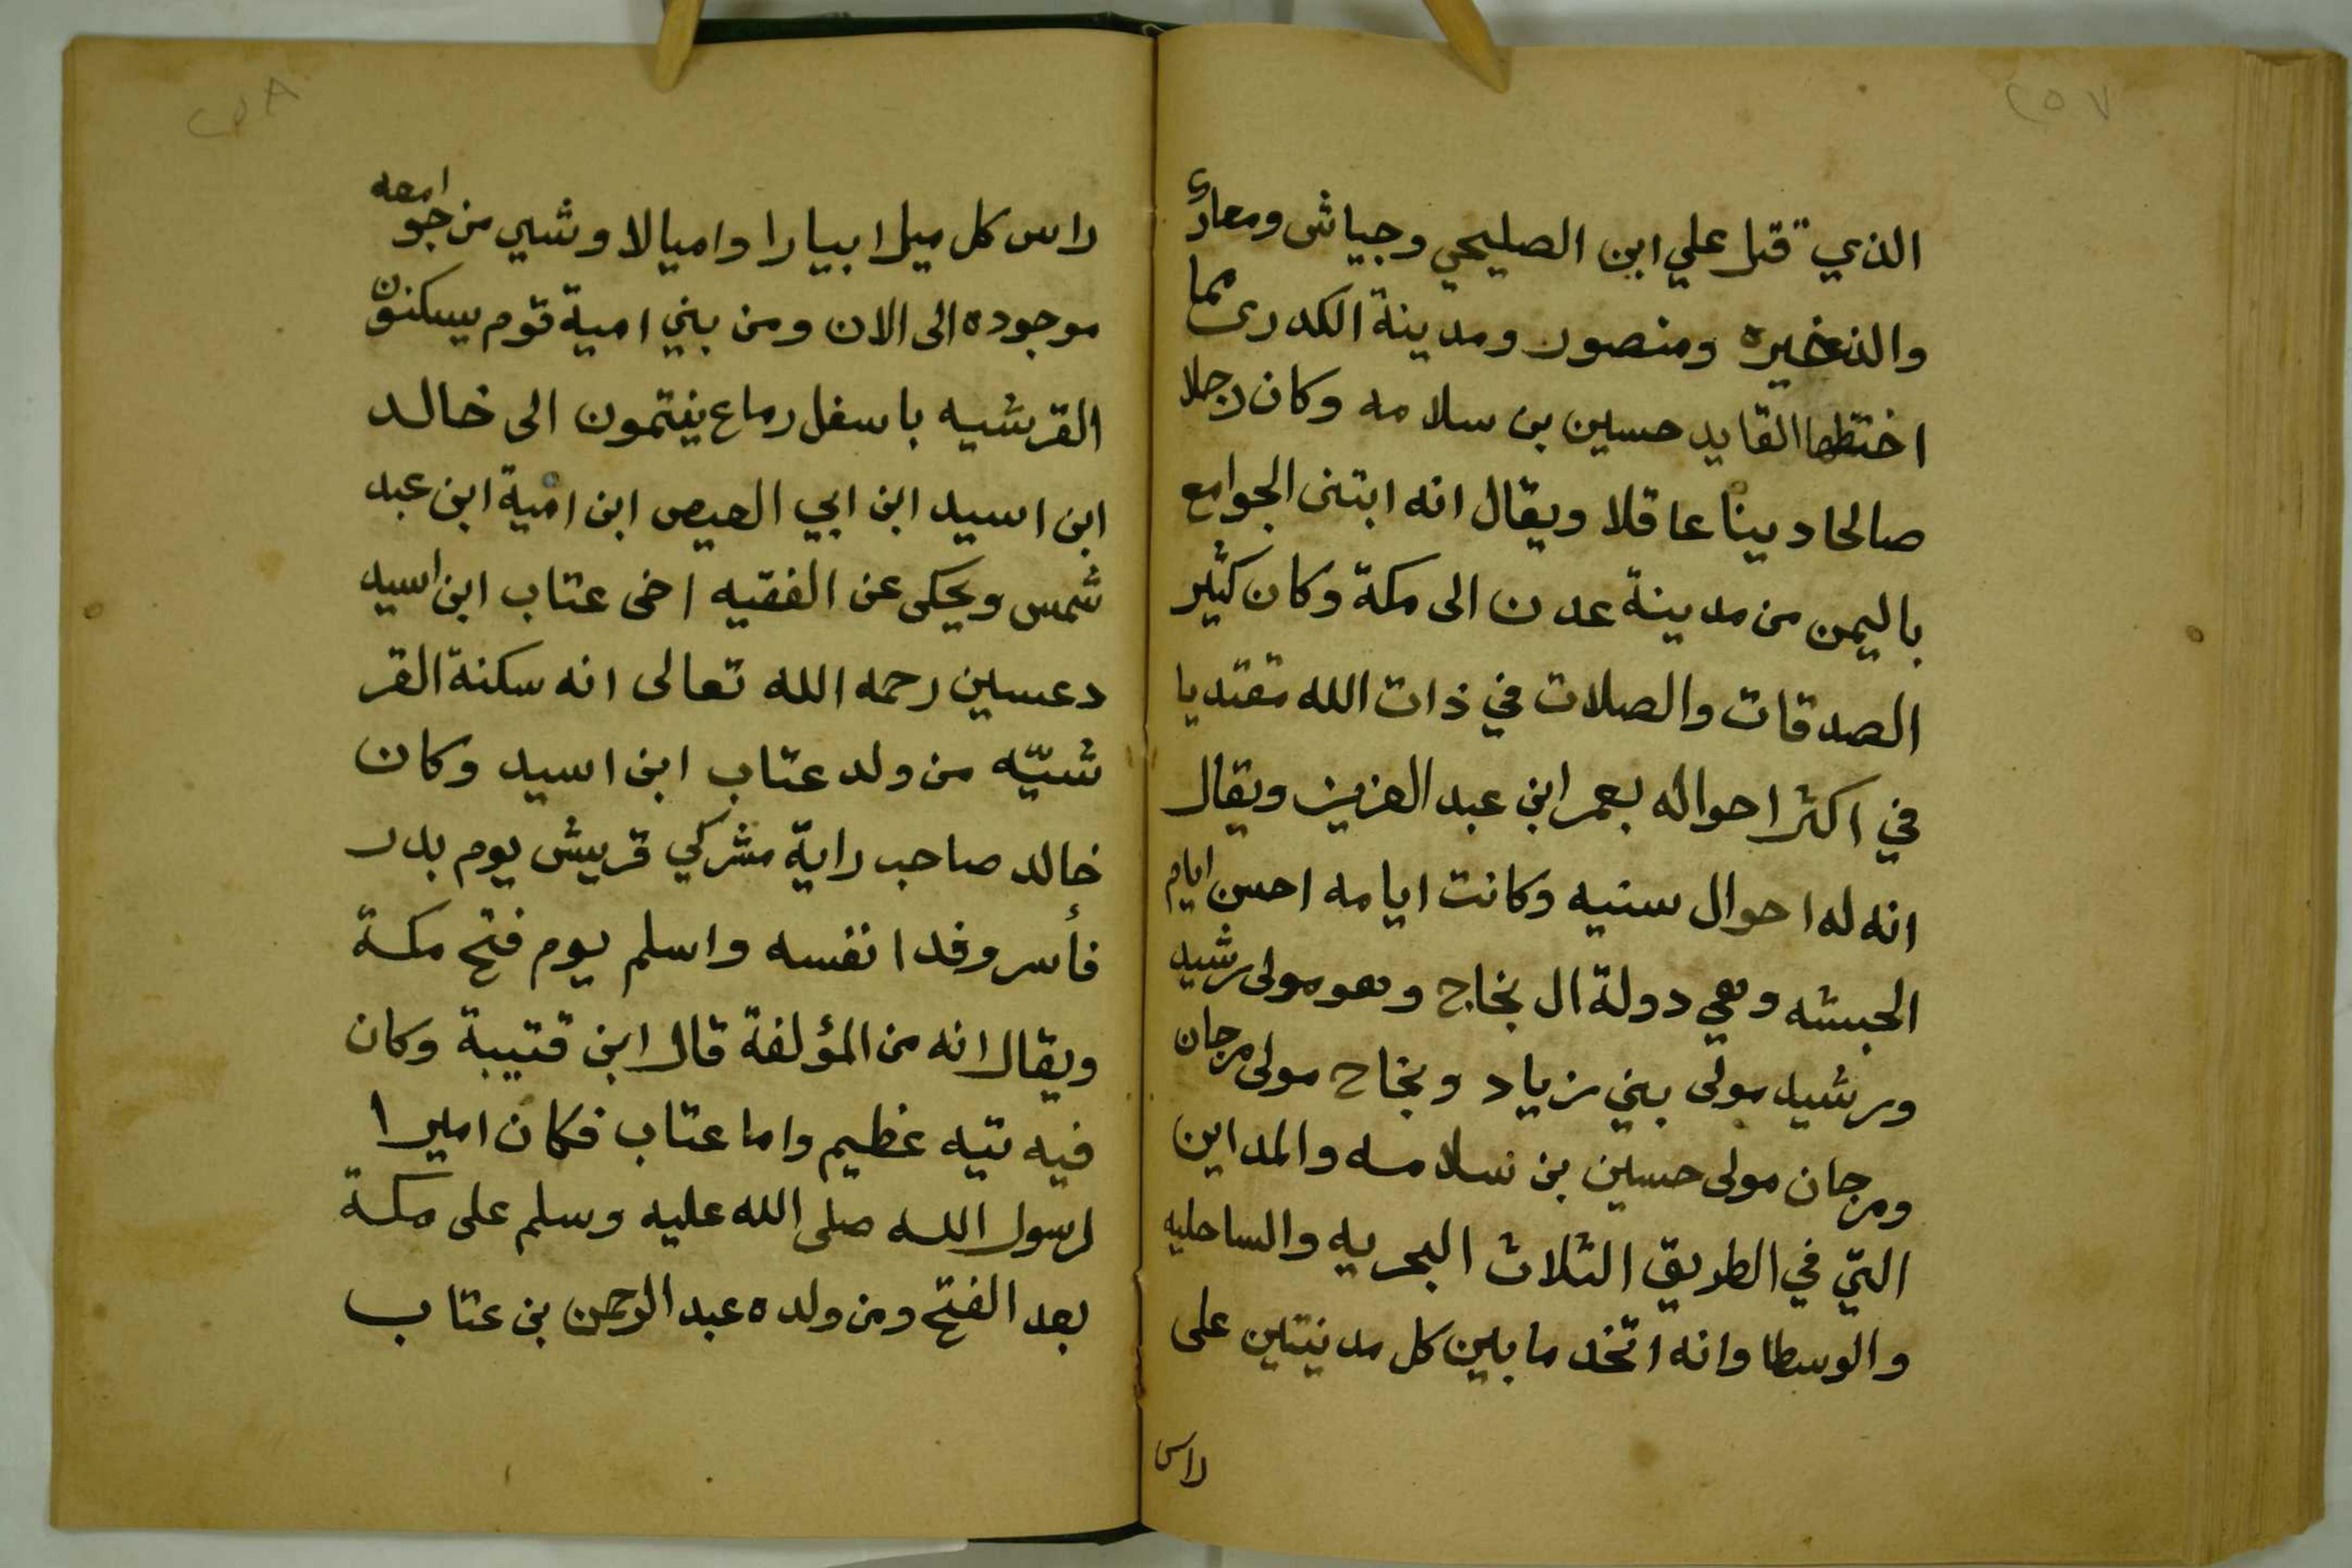 ٢٥٧
الذي قتل علي ابن الصليحي وجياش ومعارك
والذخيره ومنصور ومدينة الكدرى مما
اختطها القايد حسين بن سلامه وكان رجلا
صالحا دينا عاقلا ويقال انه ابتنى الجوامع
باليمن من مدينة عدن الى مكة وكان كثير
الصدقات والصلات في ذات الله مقتديا
في اكثر احواله بعمر ابن عبد العزيز ويقال
انه له احوال سنيه وكانت ايامه احسن ايام
الحبشه وهي دولة ال نجاح وهو مولى رشيد
ورشيد مولى بني زياد ونجاح مولى مرجان
ومرجان مولى حسين بن سلامه والمداين
التي في الطريق الثلاث البحريه والساحليه
والوسطا وانه اتخد ما بين كل مدنيتين على
راس
٢٥٨
راس كل ميل ابيارا واميالا وشي من جوامعه
موجوده الى الان ومن بني امية قوم يسكنون
القرشيه باسفل رماع ينتمون الى خالد
ابن اسيد ابن ابي العيص ابن امية ابن عبد
شمس ويحكى عن الفقيه اخى عتاب ابن اسيد
دعسين رحمه الله تعالى انه سكنة القر
شيّه من ولد عتاب ابن اسيد وكان
خالد صاحب راية مشركي قريش يوم بدر
فأسر وفدا نفسه واسلم يوم فتح مكة
ويقال انه من المؤلفة قال ابن قتيبة وكان
فيه تيه عظيم واما عتاب فكان اميرا
لرسول الله صلى الله عليه وسلم على مكة
بعد الفتح ومن ولده عبد الرحمن بن عتاب